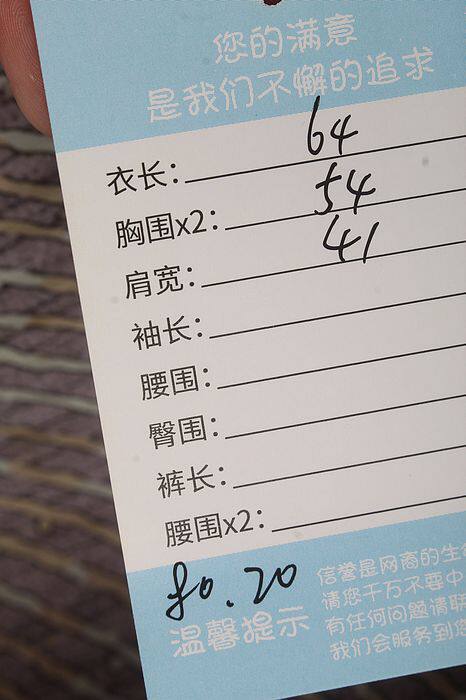 您的满意
是我们不懈的追求
衣长: 64
胸围x2: 54
肩宽: 41
袖长:
腰围:
臀围:
裤长:
腰围x2:
80.20
温馨提示
信誉是网商的生
请您千万不要中
有任何问题请联
我们会服务到您